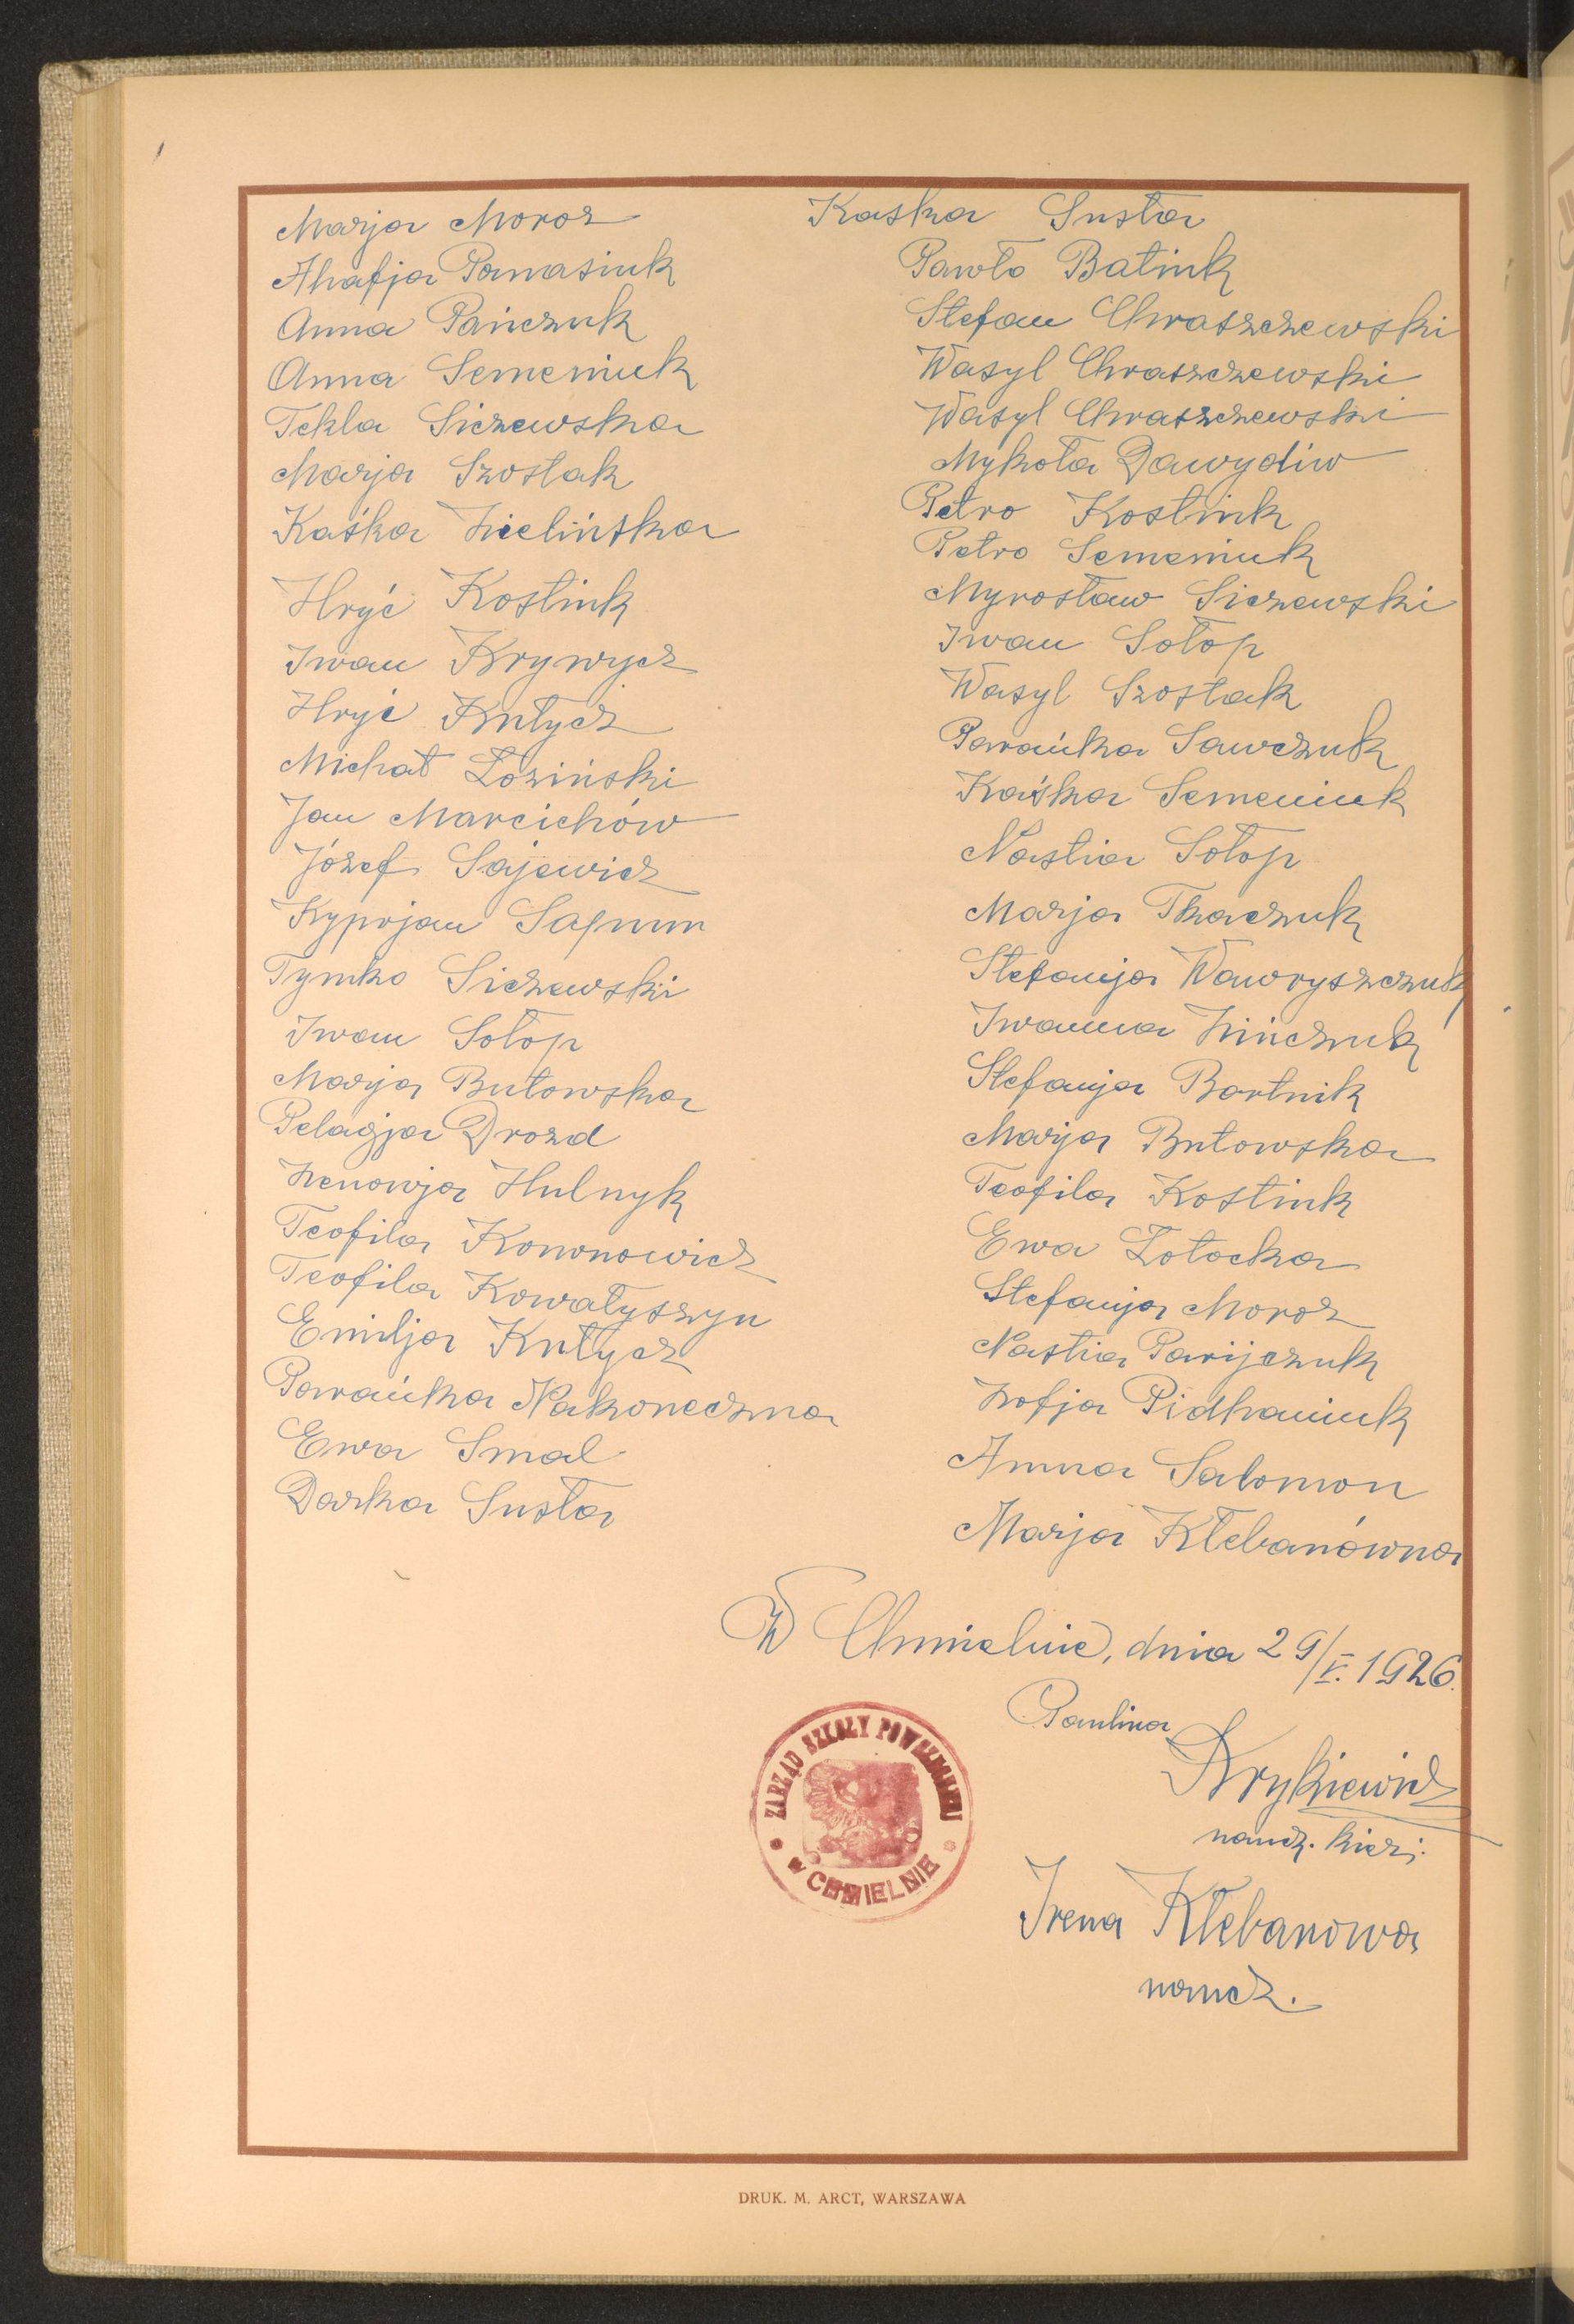 Marja Moroz
Ahafja Panasiuk
Anna Pańczuk
Anna Semeniuk
Tekla Siczewska
Marja Szostak
Kaśka Zielińska
Hryć Kostiuk
Iwan Krywycz
Hryć Kutycz
Michał Łoziński
Jan Marcichów
Józef Sajewicz
Kyprjan Sapun
Tymko Siczewski
Iwan Sołop
Marja Butowska
Pelagja Drozd
Zenowja Hulnyk
Teofila Kononowicz
Teofila Kowałyszyn
Emilja Kutycz
Parańka Nakoneczna
Ewa Smal
Darka Susła
Kaśka Susła
Pawło Batiuk
Stefan Chraszczewski
Wasyl Chraszczewski
Wasyl Chraszczewski
Mykoła Dawydiw
Petro Kostiuk
Petro Semeniuk
Myrosław Siczewski
Iwan Sołop
Wasyl Szostak
Parańka Sawczuk
Kaśka Semeniuk
Nastia Sołop
Marja Tkaczuk
Stefanja Wawryszczuk
Iwanna Zińczuk
Stefanja Bartnik
Marja Butowska
Teofila Kostiuk
Ewa Łotocka
Stefanja Moroz
Nastia Parijczuk
Zofja Pidhaniuk
Anna Salomon
Marja Kłebanówna
W Chmielnie, dnia 29/V. 1926.
Paulina
Krykiewicz
naucz. kierj.
Irena Kłebanowa
naucz.
ZARZĄD SZKOŁY POWSZECHNEJ
W CHMIELNIE
DRUK. M. ARCT, WARSZAWA